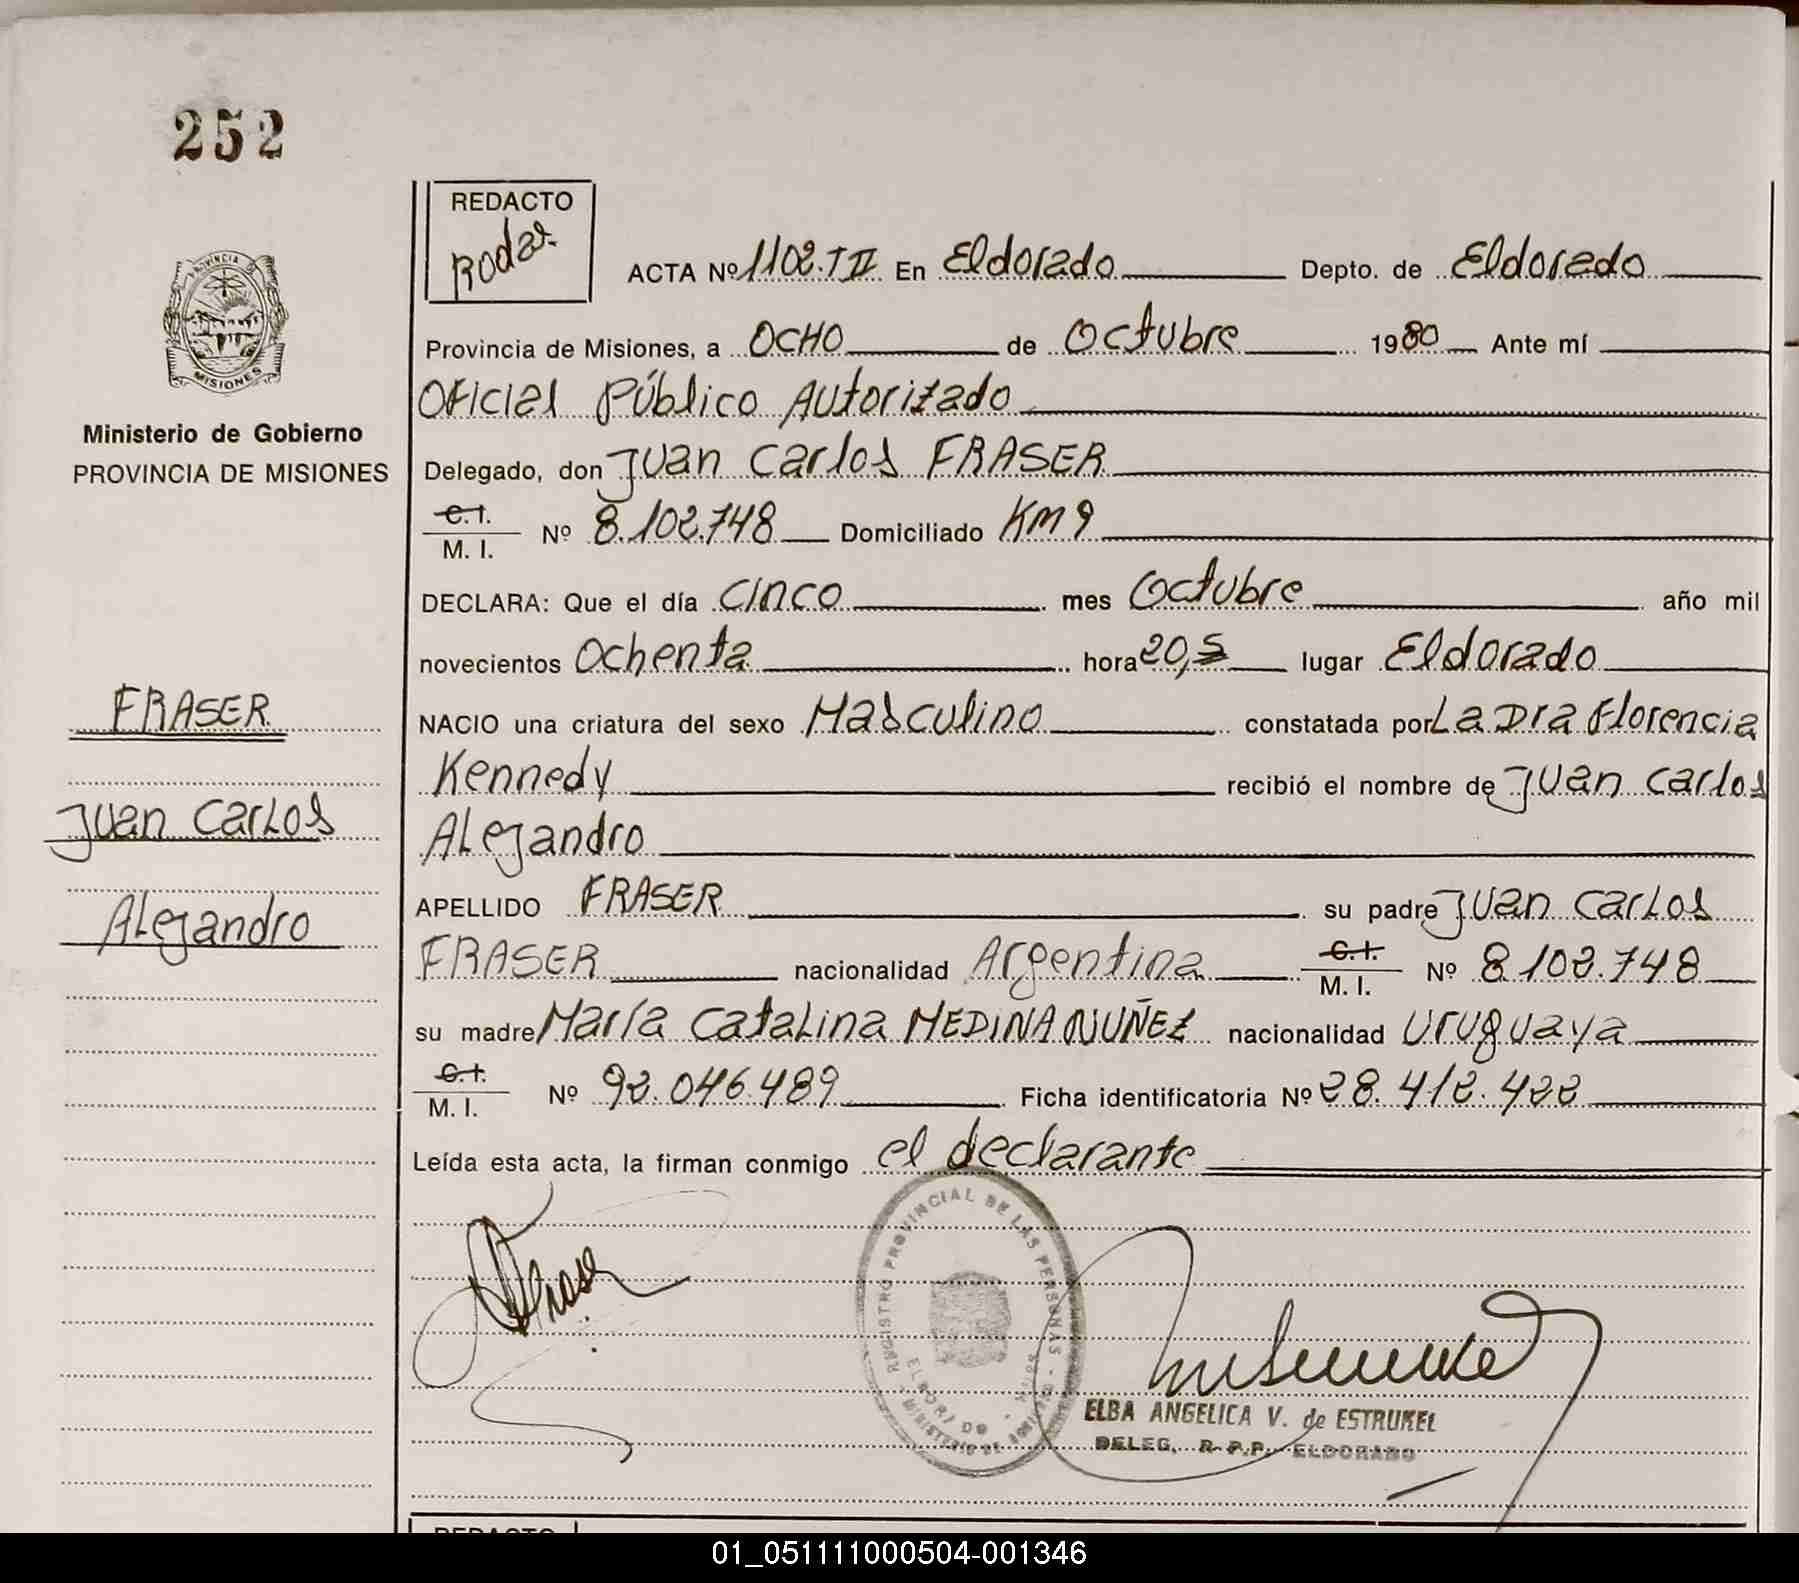 252
REDACTO
Rodar
ACTA Nº 1102.T II En Eldorado Depto. de Eldorado
Provincia de Misiones, a OCHO de Octubre 1980 Ante mí
Oficial Público Autorizado
Ministerio de Gobierno
PROVINCIA DE MISIONES
Delegado, don Juan Carlos FRASER
C.I.
M. I. Nº 8.102.748 Domiciliado Km 9
DECLARA: Que el día CINCO mes Octubre año mil
novecientos Ochenta hora 20,5 lugar Eldorado
FRASER
NACIO una criatura del sexo Masculino constatada por La Dra Florencia
Kennedy recibió el nombre de Juan Carlos
Juan Carlos
Alejandro
Alejandro
APELLIDO FRASER su padre Juan Carlos
FRASER nacionalidad Argentina C.I. M. I. Nº 8.102.748
su madre María Catalina MEDINA NUÑEZ nacionalidad Uruguaya
C.I.
M. I. Nº 92.046.489 Ficha identificatoria Nº 28.412.422
Leída esta acta, la firman conmigo el declarante
REGISTRO PROVINCIAL DE LAS PERSONAS
ELDORADO
Fraser
ELBA ANGELICA V. de ESTRUKEL
DELEG. R.P.P. ELDORADO
REDACTO
01_051111000504-001346